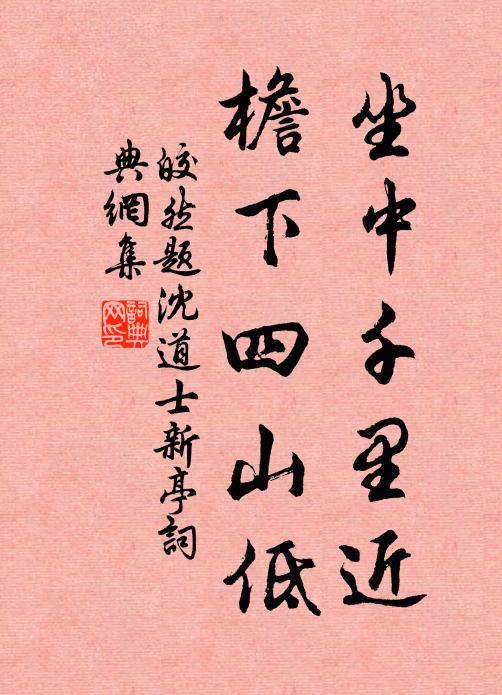 坐中千里近
檐下四山低
皎然题沈道士新亭詞
典網集
詞典
网印